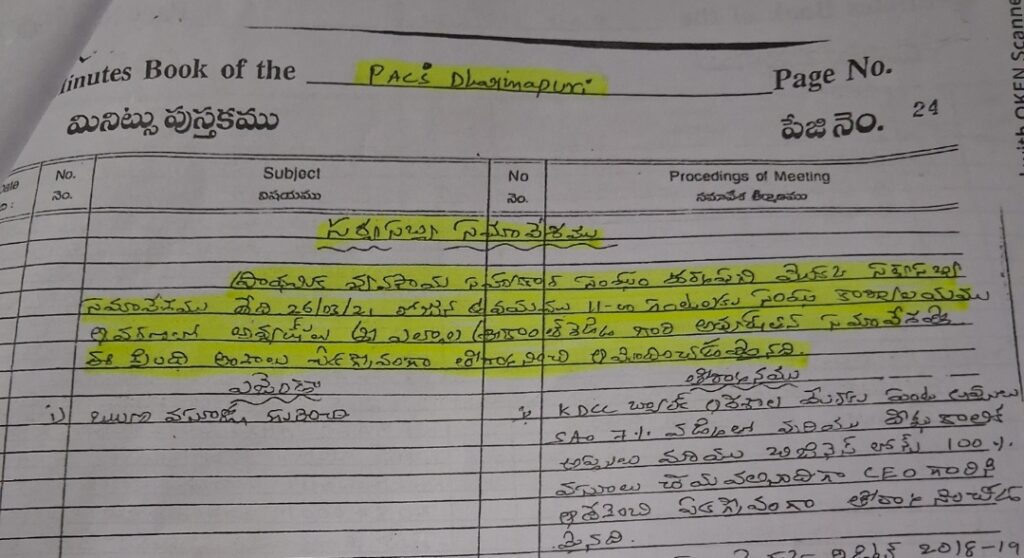 Minutes Book of the PACS Dharmapuri Page No.
మినిట్సు పుస్తకము పేజి నెం. 24
No. Subject No Procedings of Meeting
నెం. విషయము నెం. సమావేశ తీర్మానము
సర్వసభ్య సమావేశము
ప్రాథమిక వ్యవసాయ సహకార సంఘం ధర్మపురి యొక్క సర్వసభ్య
సమావేశము తేది 26/03/21 రోజున ఉదయము 11-00 గంటలకు సంఘ కార్యాలయము
ఆవరణలో అధ్యక్షులు శ్రీ గారి అధ్యక్షతన సమావేశమై
ఈ క్రింది అంశాలు ఏకగ్రీవంగా తీర్మానించి ఆమోదించడమైనది.
ఎజెండా తీర్మానము
1) ఋణ వసూళ్లు గురించి 1) KDCC బ్యాంక్ ఆదేశాల మేరకు పంట అప్పులు
SAO 7% వడ్డీతో మరియు దీర్ఘకాలిక
అప్పులు మరియు బిజినెస్ లోన్స్ 100%
వసూలు చేయవలసిందిగా CEO గారికి
ఆదేశించి ఏకగ్రీవంగా తీర్మానించడ
మైనది.
2018-19
with OKEN Scanne